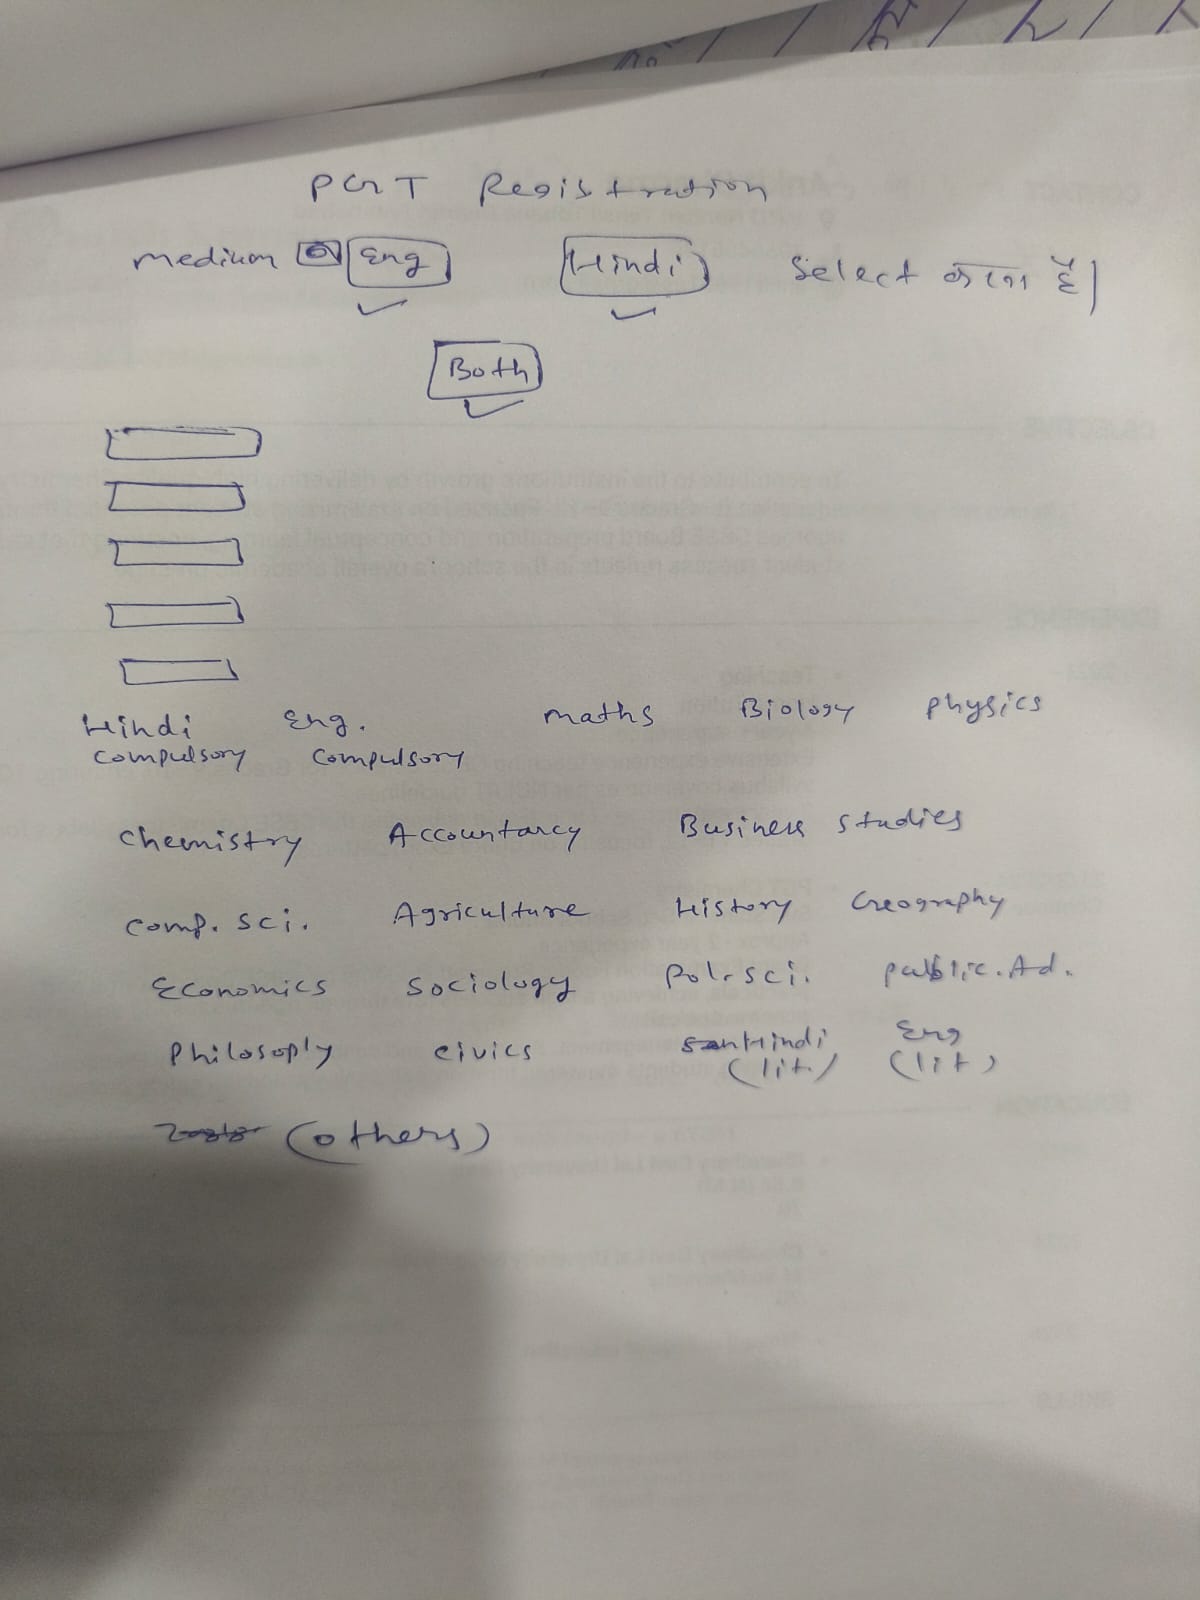 PGT Registration
medium Eng Hindi Select करना है|
Both
Hindi Eng. maths Biology physics
compulsory compulsory
chemistry Accountancy Business studies
comp. sci. Agriculture History Geography
Economics sociology Pol. sci. public. Ad.
Philosoply civics Hindi Eng
(lit.) (lit)
(others)